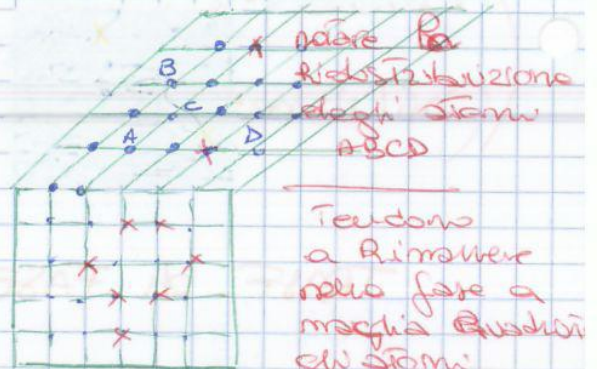 B
C
A
D
notare la
Ridistribuzione
degli atomi
ABCD
Tendono
a Rimanere
nella fase a
maglia Quadrati
di atomi